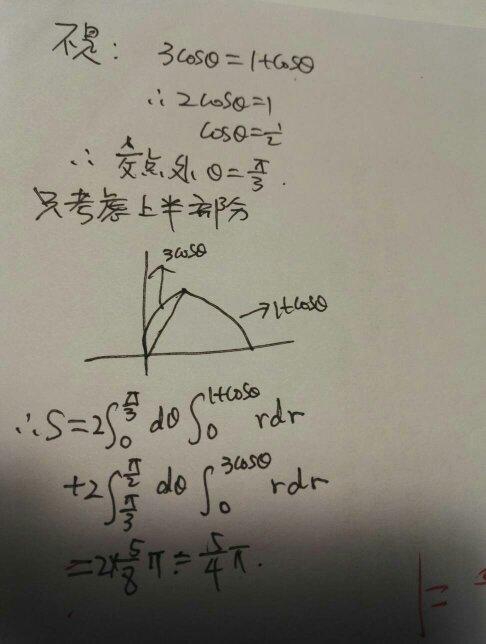 不是: 3cosθ=1+cosθ
∴2cosθ=1
cosθ=1/2
∴交点处θ=π/3.
只考虑上半部分
3cosθ
1+cosθ
∴S=2∫₀^{π/3} dθ ∫₀^{1+cosθ} rdr
+2∫_{π/3}^{π/2} dθ ∫₀^{3cosθ} rdr
=2×5/8 π=5/4 π.